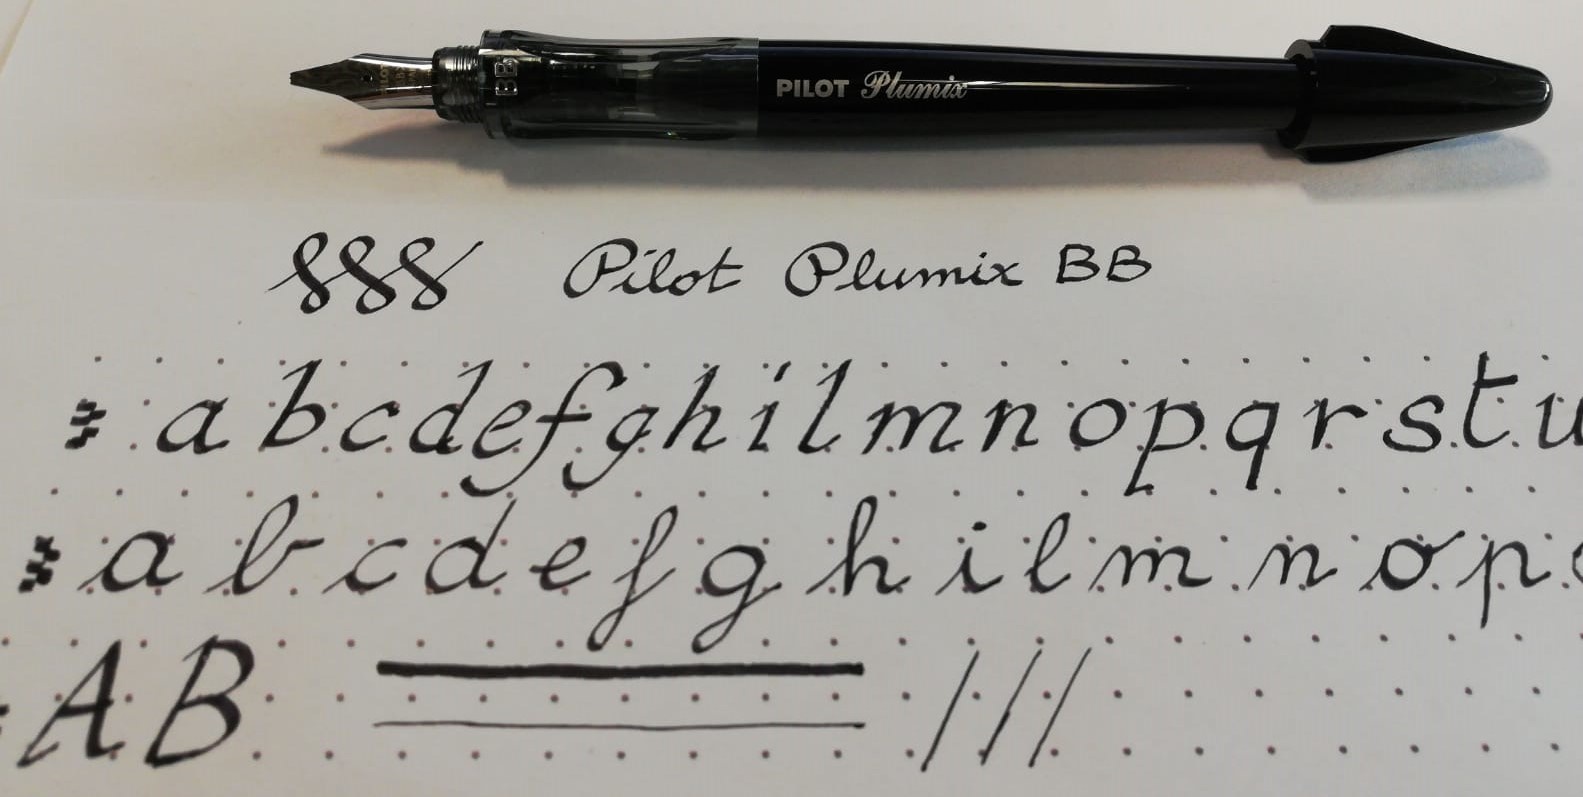 BB PILOT Plumix
Pilot Plumix BB
a b c d e f g h i l m n o p q r s t u
a b c d e f g h i l m n o p
A B